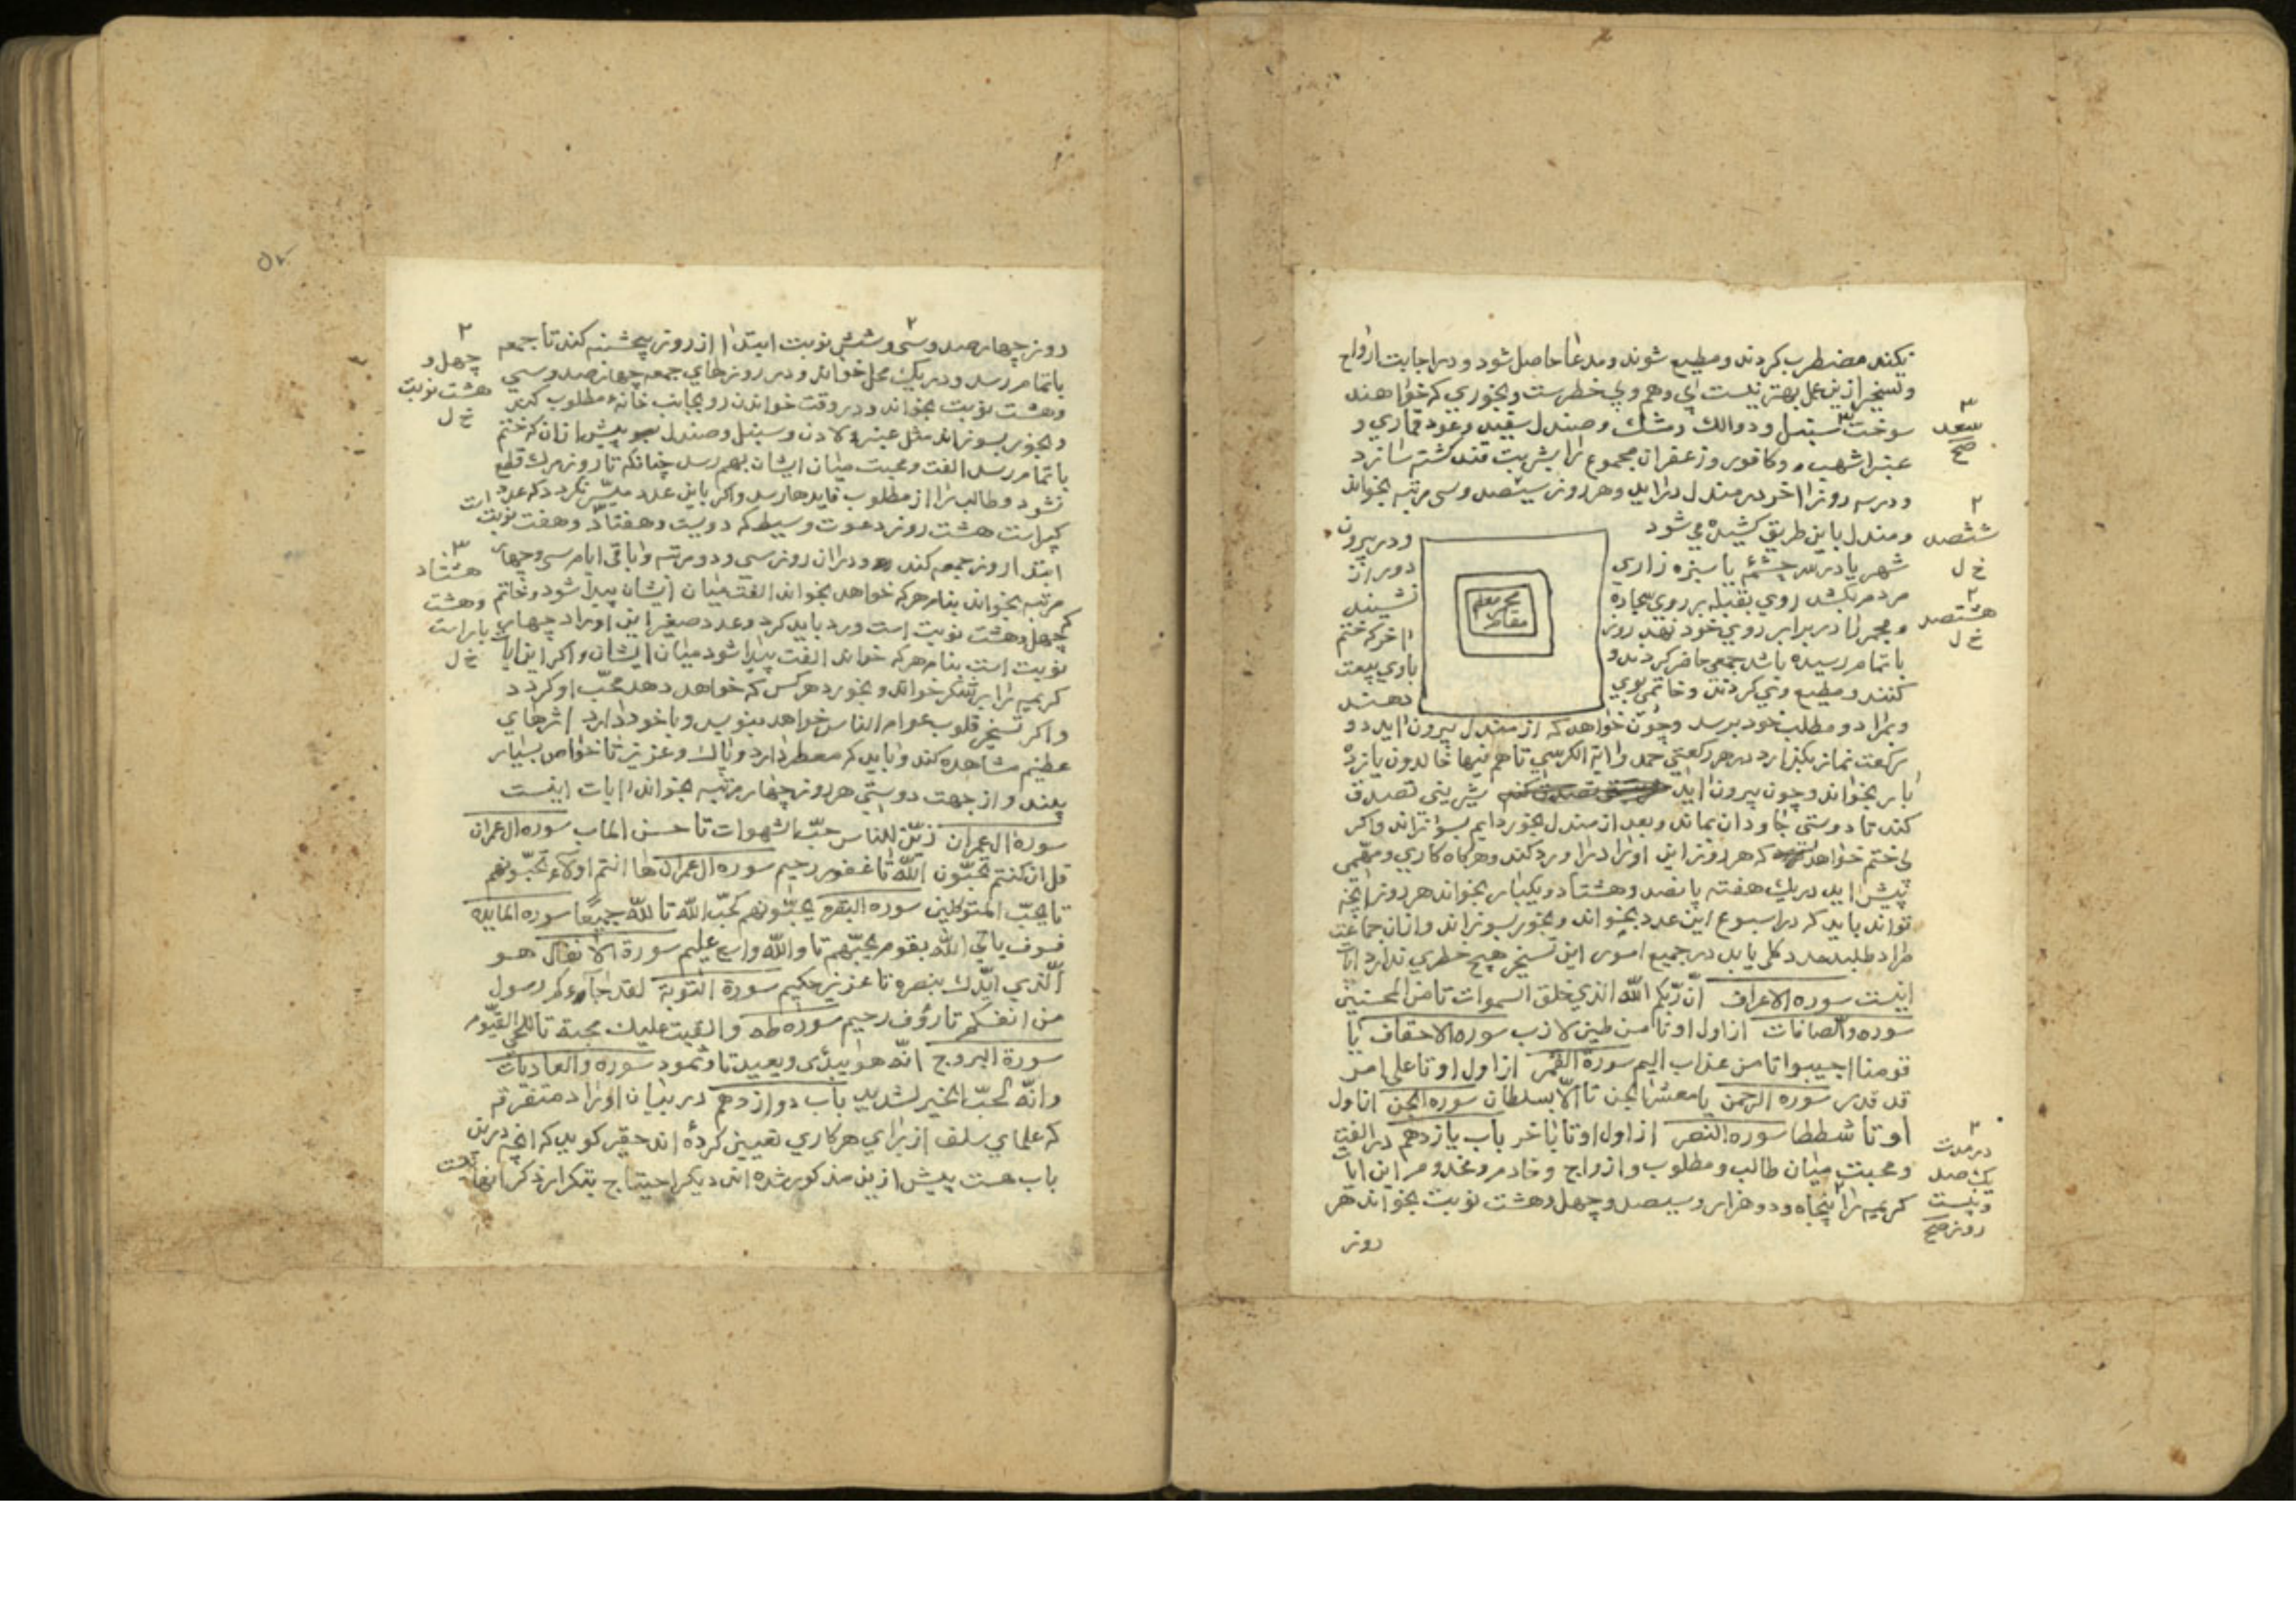 نکنند مضطرب کردند و مطیع شوند و مدعا حاصل شود و در اجابت ارواح
و تسخیر ازین عمل بهتر نیست بی وهم و بی خطرست و بخوری که خواهند
سوخت سنبل و دوالک و مشک و صندل سفید و عود قماری و
سعد
صح
عنبر اشهب و کافور و زعفران مجموع را بشربت قند کشته سازد
و در سه روز اخر در مندل دراید و هر روز سیصد و سی مرتبه بخواند
و مندل باین طریق کشیده می شود
ششصد
خ ل
هشتصد
خ ل
شهر یا در سر چشمه یا سبزه زاری
مردم نکشد روی بقبله بر روی سجاده
و مجمر را در برابر روی خود نهد روز
باتمام رسیده باشد جمعی حاضر کردند و
کنند و مطیع وی کردند و خاتمی بوی
محل معلم
مقام
و در بیرون
دور از
نشیند
اخر که ختم
باوی بیعت
دهند
و مراد و مطلب خود برسد و چون خواهد که از مندل بیرون اید دو
رکعت نماز بکذارد در هر رکعتی حمد و ایة الکرسی تا هم فیها خالدون یازده
بار بخواند و چون بیرون اید شیرینی تصدق
کند تا دوستی جاودان بماند و بعد از مندل بخور دایم بسوزاند و اکر
بی ختم خواهد که هر روز این اوراد را ورد کند و هر کاه کاری و مهمی
پیش اید در یک هفته پانصد و هشتاد و یکبار بخواند هر روز انچه
تواند باید که در اسبوع این عدد بخواند و بخور بسوزاند و از ان جماعت
مراد طلبد مدد کلی یابد در جمیع امور این تسخیر هیچ خطری ندارد ایات
اینست سوره الاعراف ان ربکم الله الذی خلق السموات تا من المحسنین
سوره والصافات از اول او تا من طین لازب سوره الاحقاف یا
قومنا اجیبوا تا من عذاب الیم سورة القمر از اول او تا علی امر
قد قدر سوره الرحمن یا معشر الجن تا الا بسلطان سوره الجن از اول
او تا شططا سوره النصر از اول او تا باخر باب یازدهم در الفت
و محبت میان طالب و مطلوب و ازواج و خادم و مخدوم این ایات
کریمه را پنجاه و دو هزار و سیصد و چهل و هشت نوبت بخواند هر
در مدت
یکصد
و بیست
روز صح
روز
روز چهارصد و سی و شش نوبت ابتدا از روز پنجشنبه کند تا جمعه
باتمام رسد و در یک محل خواند و در روزهای جمعه چهارصد و سی
و هشت نوبت بخواند و در وقت خواندن رو بجانب خانهٔ مطلوب کند
چهل و
هشت نوبت
خ ل
و بخور بسوزاند مثل عنبر و لادن و سنبل و صندل پیش از ان که ختم
باتمام رسد الفت و محبت میان ایشان بهم رسد چنانکه تا روز مرک قطع
نشود و طالب را از مطلوب فایدها رسد و اکر باین عدد میسر نکردد که عدد
کبیر است هشت روز دعوت وسیط که دویست و هفتاد و هفت نوبت است
ابتدا روز جمعه کند و در ان روز سی و دو مرتبه و باقی ایام سی و چهار
مرتبه بخواند بنام هر که خواهد بخواند الفت میان ایشان پیدا شود و خاتم
هشتاد
و هشت
بار است
خ ل
که چهل و هشت نوبت است ورد باید کرد و عدد صغیر این اوراد چهار
نوبت است بنام هر که خواند الفت پیدا شود میان ایشان و اکر این ایات
کریمه را بر شکر خواند و بخورد هر کس که خواهد دهد محب او کردد
و اکر تسخیر قلوب عوام الناس خواهد بنویسد و با خود دارد اثرهای
عظیم مشاهده کند و باید که معطر دارد و پاک و عزیز تا خواص بسیار
بیند و از جهت دوستی هر روز چهار مرتبه بخواند ایات اینست
سورة ال عمران زین للناس حب الشهوات تا حسن الماب سوره ال عمران
قل ان کنتم تحبون الله تا غفور رحیم سوره ال عمران ها انتم اولاء تحبونهم
تا یحب المتوکلین سوره البقره یحبونهم کحب الله تا لله جمیعا سوره المایده
فسوف یاتی الله بقوم یحبهم تا والله واسع علیم سورة الانفال هو
الذی ایدک بنصره تا عزیز حکیم سورة التوبة لقد جاءکم رسول
من انفسکم تا رؤف رحیم سوره طه و القیت علیک محبة تا للحی القیوم
سورة البروج انه هو یبدئ و یعید تا و ثمود سوره والعادیات
وانه لحب الخیر لشدید باب دوازدهم در بیان اوراد متفرقه
که علمای سلف از برای هر کاری تعیین کرده اند حقیر کوید که انچه درین
باب هست پیش ازین مذکور شده اند دیکر احتیاج بتکرار ذکر انها نیست